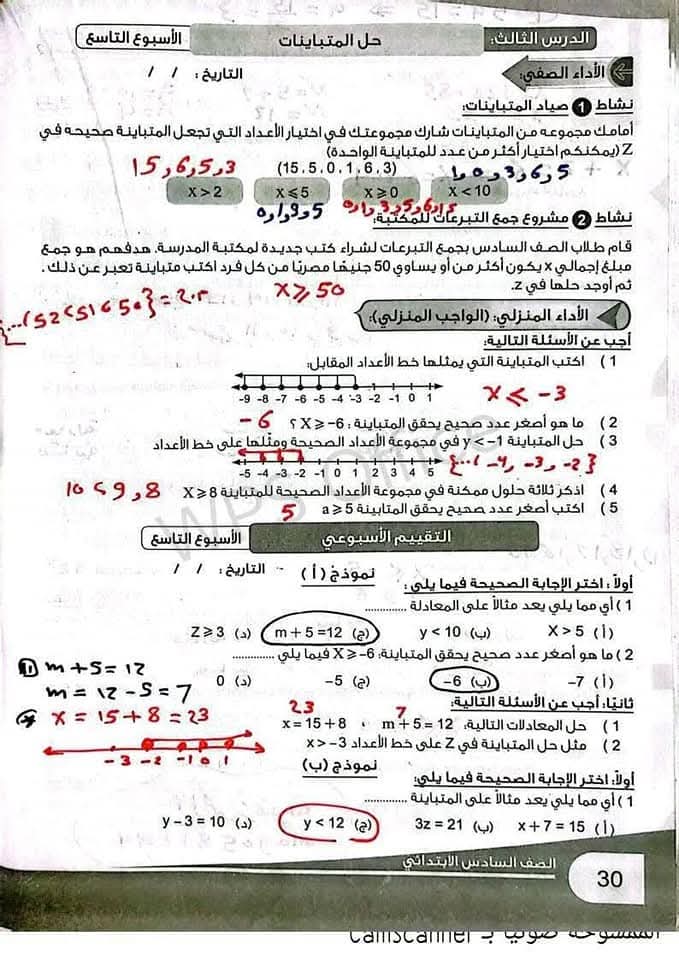 الدرس الثالث: حل المتباينات الأسبوع التاسع
الأداء الصفي: التاريخ: / /
نشاط 1 صياد المتباينات:
أمامك مجموعه من المتباينات شارك مجموعتك في اختيار الأعداد التي تجعل المتباينة صحيحة في
Z (يمكنكم اختيار أكثر من عدد للمتباينة الواحدة)
(15, 5, 0, 1, 6, 3)
15, 6, 5, 3
5, 6, 3, 0, 1
x > 2 x ⩽ 5 x ⩾ 0 x < 10
نشاط 2 مشروع جمع التبرعات للمكتبة:
قام طلاب الصف السادس بجمع التبرعات لشراء كتب جديدة لمكتبة المدرسة، هدفهم هو جمع
مبلغ إجمالي x يكون أكثر من أو يساوي 50 جنيهًا مصريًا من كل فرد اكتب متباينة تعبر عن ذلك.
ثم أوجد حلها في Z.
x ⩾ 50
الأداء المنزلي: (الواجب المنزلي):
أجب عن الأسئلة التالية:
1 ) اكتب المتباينة التي يمثلها خط الأعداد المقابل:
-9 -8 -7 -6 -5 -4 -3 -2 -1 0 1
x ⩽ -3
2 ) ما هو أصغر عدد صحيح يحقق المتباينة: X ⩾ -6 ؟ -6
3 ) حل المتباينة y < -1 في مجموعة الأعداد الصحيحة ومثلها على خط الأعداد
-5 -4 -3 -2 -1 0 1 2 3 4 5
{... , -4, -3, -2}
4 ) اذكر ثلاثة حلول ممكنة في مجموعة الأعداد الصحيحة للمتباينة X ⩾ 8 8 , 9 , 10
5 ) اكتب أصغر عدد صحيح يحقق المتابينة a ⩾ 5 5
التقييم الأسبوعي الأسبوع التاسع
نموذج (أ) التاريخ: / /
أولاً: اختر الإجابة الصحيحة فيما يلي:
1 ) أي مما يلي يعد مثالاً على المعادلة ............
(أ) X > 5 (ب) y < 10 (ج) m + 5 = 12 (د) Z ⩾ 3
2 ) ما هو أصغر عدد صحيح يحقق المتباينة: X ⩾ -6 فيما يلي ............
(أ) -7 (ب) -6 (ج) -5 (د) 0
ثانيًا: أجب عن الأسئلة التالية:
23 7
1 ) حل المعادلات التالية: m + 5 = 12 ، x = 15 + 8
2 ) مثل حل المتباينة في Z على خط الأعداد x > -3
m + 5 = 12
m = 12 - 5 = 7
x = 15 + 8 = 23
-3 -2 -1 0 1
نموذج (ب)
أولاً: اختر الإجابة الصحيحة فيما يلي:
1 ) أي مما يلي يعد مثالاً على المتباينة ............
(أ) x + 7 = 15 (ب) 3z = 21 (ج) y < 12 (د) y - 3 = 10
الصف السادس الابتدائي
30
WPS Office
الممسوحة ضوئيا بـ CamScanner